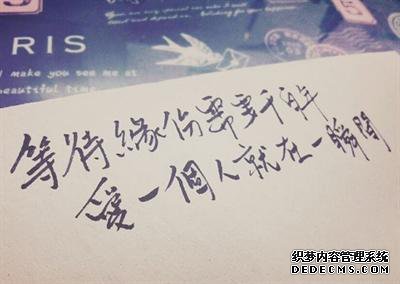 RIS
I make you see me at
beautiful time.
等待緣份需要千百年
愛一個人就在一瞬間
织梦内容管理系统
DEDECMS.COM